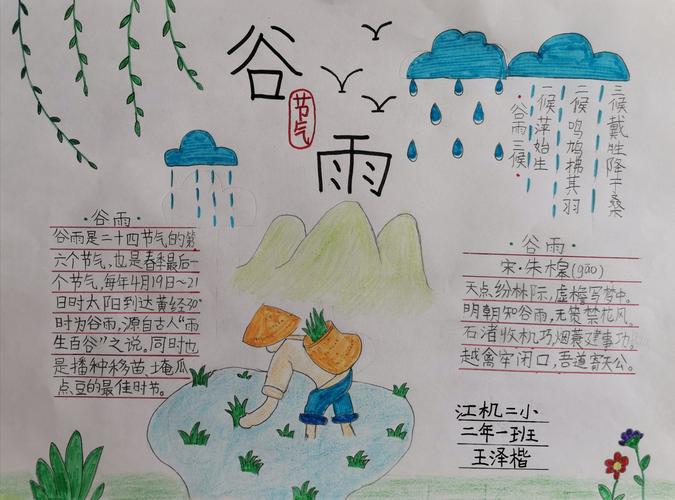 谷
节气
雨
·谷雨三候·
一候萍始生
二候鸣鸠拂其羽
三候戴胜降于桑
·谷雨·
谷雨是二十四节气的第
六个节气,也是春季最后一
个节气,每年4月19日~21
日时太阳到达黄经30°
时为谷雨,源自古人“雨
生百谷”之说。同时也
是播种移苗、埯瓜
点豆的最佳时节。
·谷雨·
宋·朱槔(gāo)
天点纷林际,虚檐写梦中。
明朝知谷雨,无策禁花风。
石渚收机巧,烟蓑建事功。
越禽牢闭口,吾道寄天公。
江机二小
二年一班
王泽楷